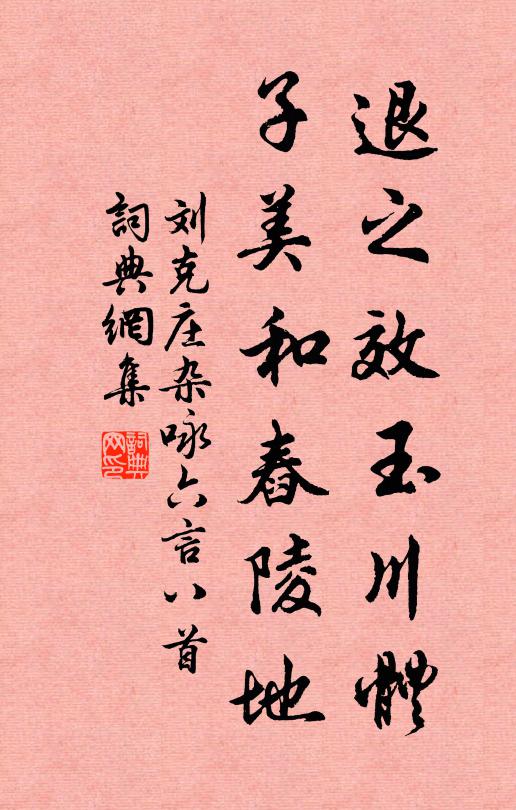 退之效玉川體
子美和舂陵地
刘克庄杂咏六言八首
詞典網集
詞典网印